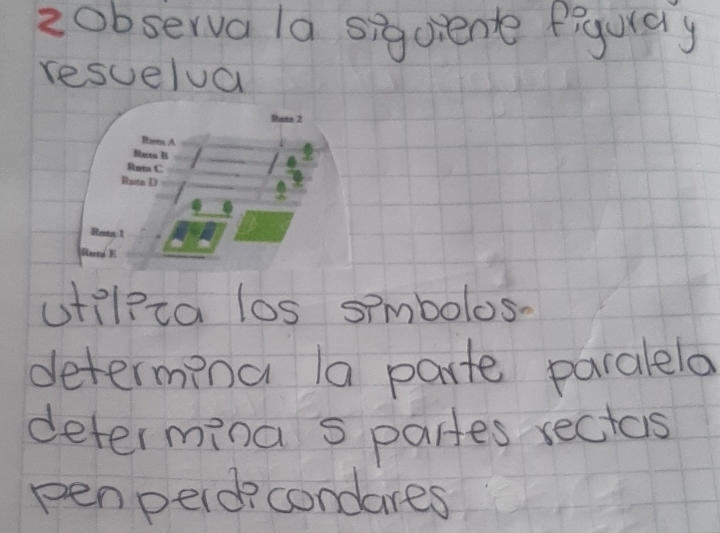 2 Observa la siguiente figura y
resuelva
Ruta 2
Ruta A
Ruta B
Ruta C
Ruta D
Ruta 1
Ruta E
utiliza los simbolos.
determina la parte paralela
determina 5 partes rectas
penperdicondares